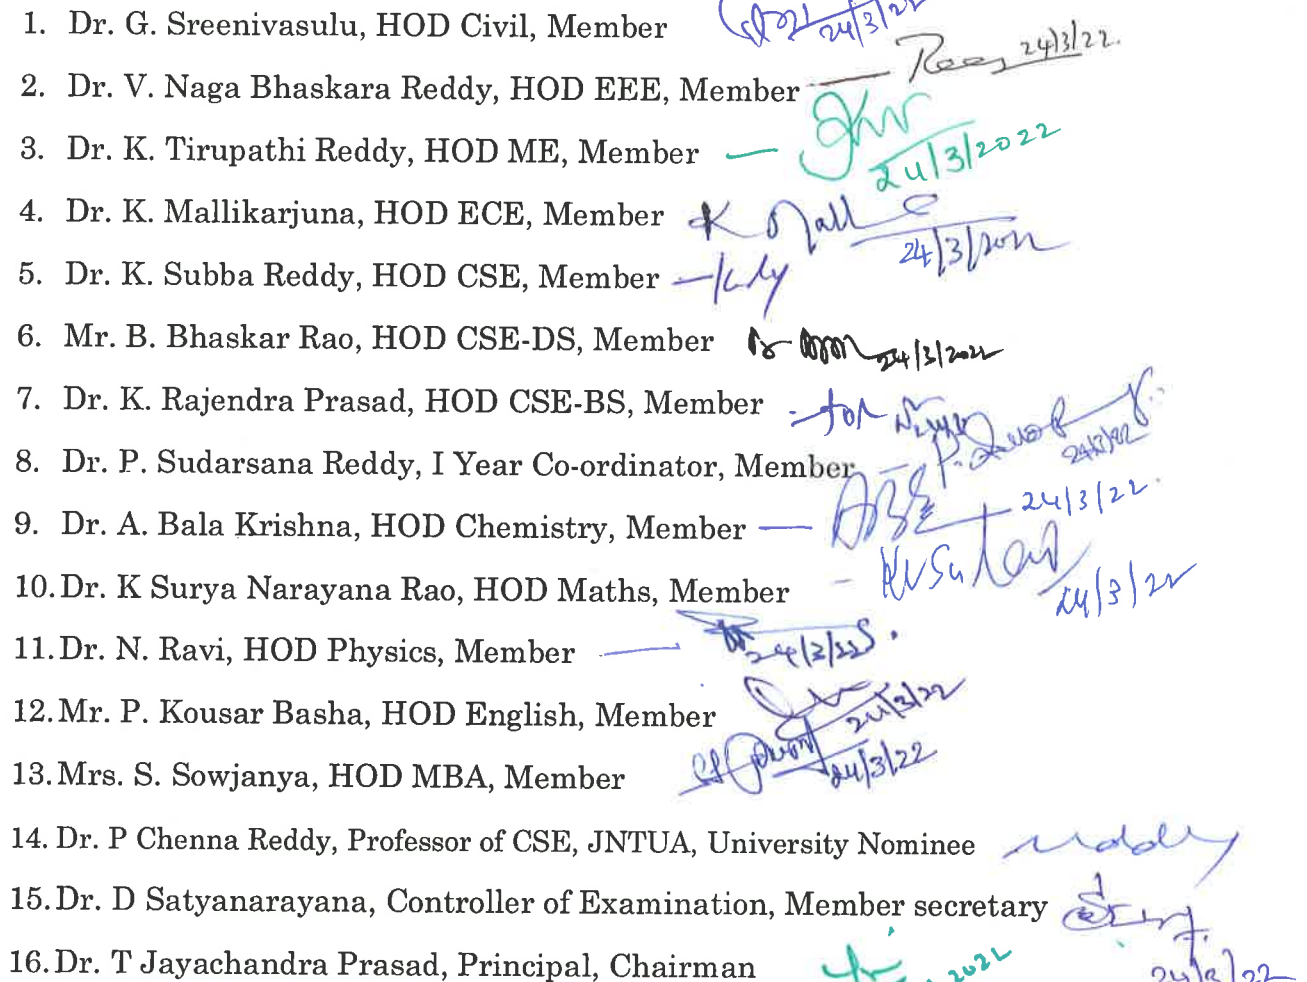 1. Dr. G. Sreenivasulu, HOD Civil, Member 24/3/22
2. Dr. V. Naga Bhaskara Reddy, HOD EEE, Member 24/3/22.
3. Dr. K. Tirupathi Reddy, HOD ME, Member 24/3/2022
4. Dr. K. Mallikarjuna, HOD ECE, Member K Mall 24/3/2022
5. Dr. K. Subba Reddy, HOD CSE, Member
6. Mr. B. Bhaskar Rao, HOD CSE-DS, Member 24/3/2022
7. Dr. K. Rajendra Prasad, HOD CSE-BS, Member for
8. Dr. P. Sudarsana Reddy, I Year Co-ordinator, Member 24/3/22
9. Dr. A. Bala Krishna, HOD Chemistry, Member 24/3/22.
10. Dr. K Surya Narayana Rao, HOD Maths, Member 24/3/22
11. Dr. N. Ravi, HOD Physics, Member 24/3/22
12. Mr. P. Kousar Basha, HOD English, Member 24/3/22
13. Mrs. S. Sowjanya, HOD MBA, Member 24/3/22
14. Dr. P Chenna Reddy, Professor of CSE, JNTUA, University Nominee
15. Dr. D Satyanarayana, Controller of Examination, Member secretary 24/3/22
16. Dr. T Jayachandra Prasad, Principal, Chairman 2022